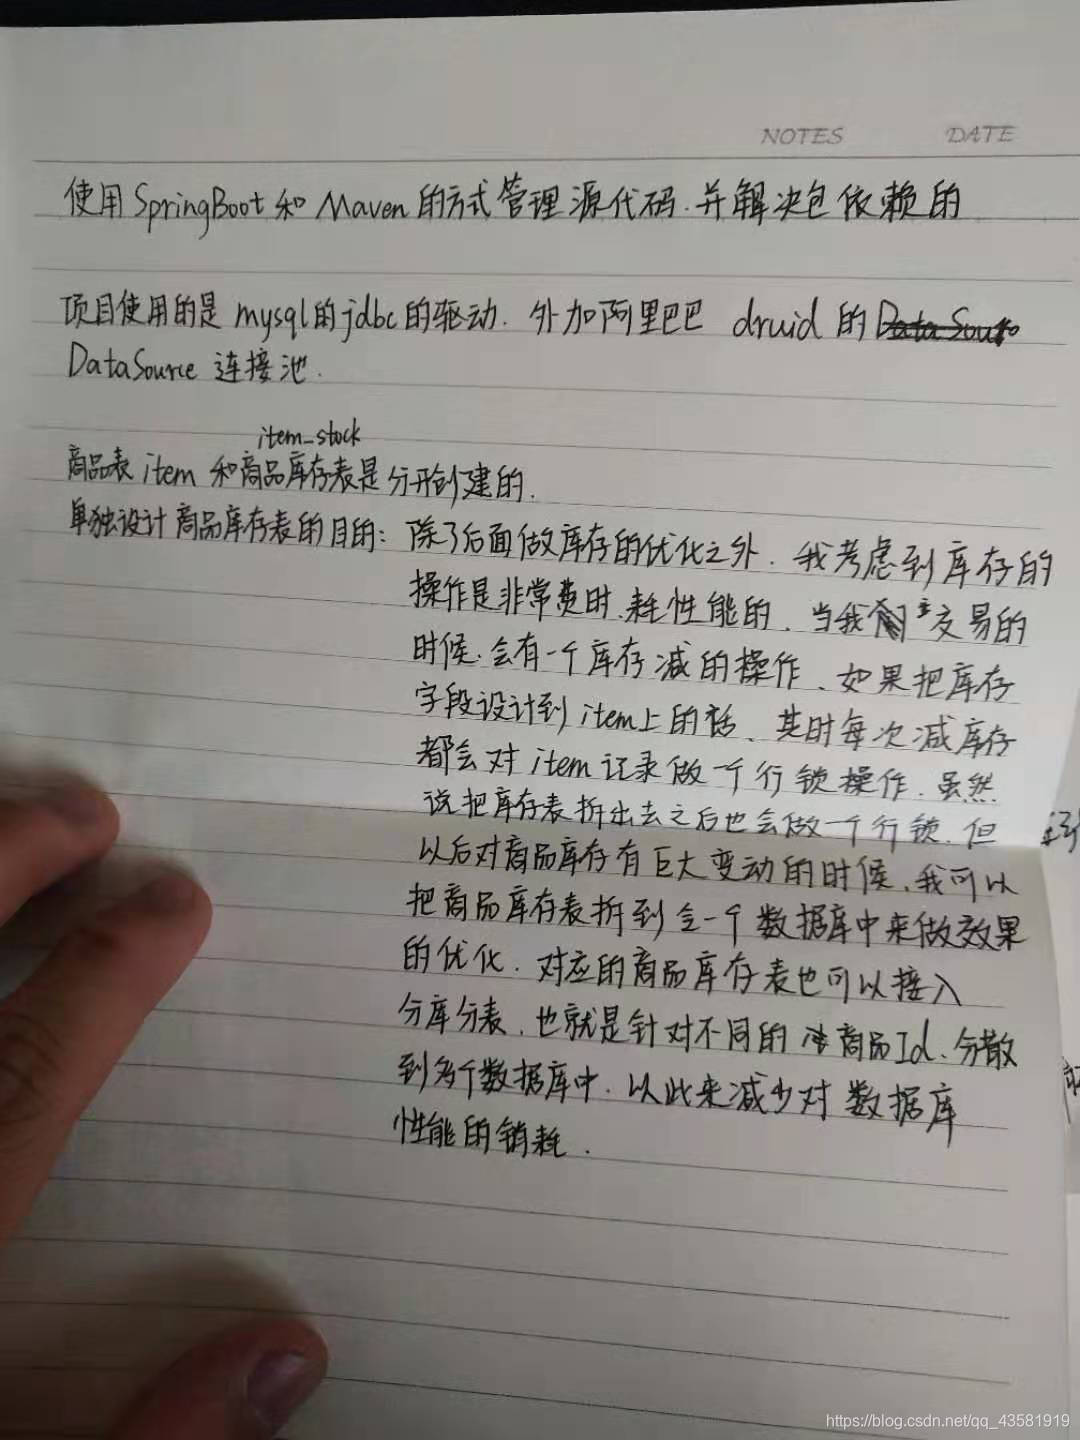 NOTES DATE
使用SpringBoot和Maven的方式管理源代码.并解决包依赖的
项目使用的是mysql的jdbc的驱动.外加阿里巴巴 druid的Data Sour
DataSource 连接池.
item_stock
商品表item和商品库存表是分开创建的.
单独设计商品库存表的目的: 除了后面做库存的优化之外.我考虑到库存的
操作是非常费时.耗性能的、当我们 交易的
时候.会有一个库存减的操作、如果把库存
字段设计到item上的话、其时每次减库存
都会对item记录做一个行锁操作.虽然
说把库存表拆出去之后也会做一个行锁.但
以后对商品库存有巨大变动的时候、我可以
把商品库存表拆到 一个数据库中来做效果
的优化.对应的商品库存表也可以接入
分库分表、也就是针对不同的 商品Id、分散
到多个数据库中.以此来减少对数据库
性能的销耗.
https://blog.csdn.net/qq_43581919